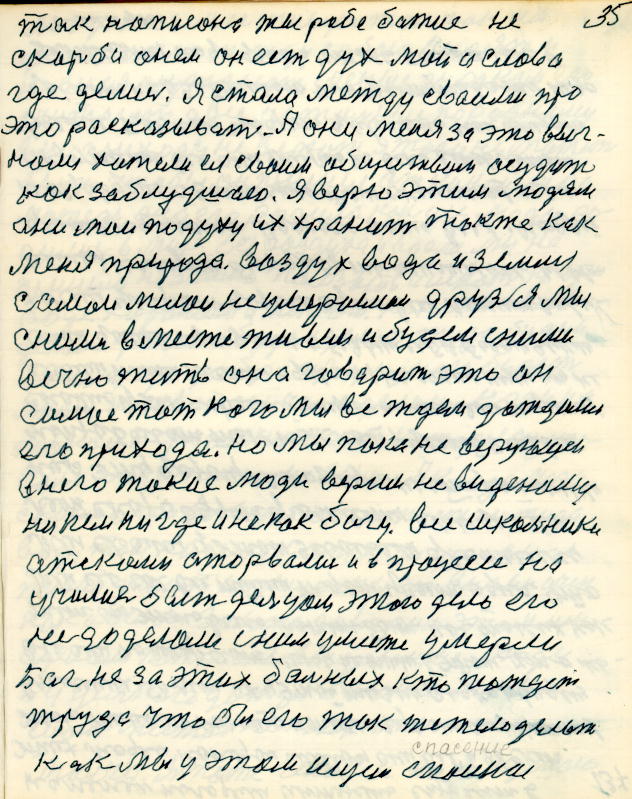 35
так написано ты рабе божие не
скорби онем он ест дух мой и слова
где делия. Я стала метду своими про
это расказыват. А они меня за это выг-
нали хотели ел своим общижвом осудит
как заблудшего. Я верю этим людям
они мои подуху их хранит также как
меня природа. воздух вода и земля
самои милои неумираемои друзя мы
сними вместе живем и будем сними
вечно жить она говорит это он
самое тот кого мы все ждем дождали
его прихода. но мы пока не верующеи
внего такие люди верим не виденому
ником нигде и некак богу. все школники
отсколи оторвали и в процесе на
училис быт делцом этого дело его
не доделоли сним умете умерли
Бог не за этих болных кто тождет
труда что бы его так тежело делат
как мы у этом ищем спасиние
спасение